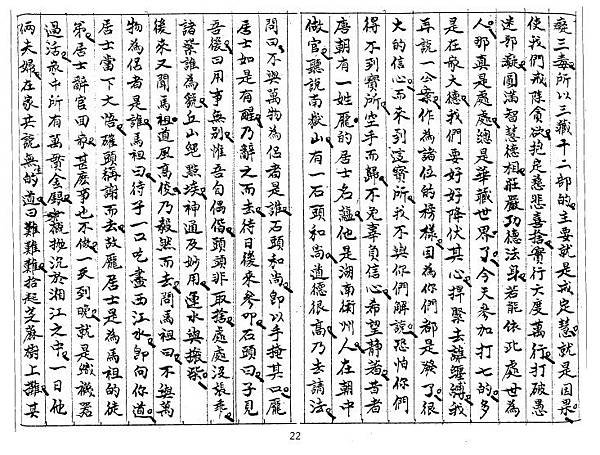 癡三毒所以三藏十二部的主要就是戒定慧就是因果
使我們戒除貪欲抱定慈悲喜捨實行六度萬行打破愚
迷邪癡圓滿智慧德相莊嚴功德法身若能依此處世為
人那真是處處總是華藏世界了今天參加打七的多
是在家大德我們要好好降伏其心趕緊去離纏縛我
再說一公案作為諸位的榜樣因為你們都是發了很
大的信心而來到這寶所我不與你們解說恐怕你們
得不到寶所空手而歸不免辜負信心希望靜着昔者
唐朝有一姓龐的居士名蘊他是湖南衡州人在朝中
做官聽說南嶽山有一石頭和尚道德很高乃去請法
問曰不與萬物為侶者是誰石頭和尚卽以手掩其口龐
居士如是有醒乃辭之而去待日後來參叩石頭曰子見
吾後曰用事無別惟吾自偶偕頭頭非取捨處處沒張乖
諸紫誰為號丘山絕點埃神通及妙用運水與搬柴
後來又聞馬祖道風高俊乃毅然而去問馬祖曰不與萬
物為侶者是誰馬祖曰待子一口吃盡西江水卽向你道
居士當下大悟確頭稱謝而去故龐居士是為馬祖的徒
弟居士辭官回家甚麼事也不做一天到晚就是織襪器
過活家中所有萬貫金銀概拋沉於湘江之中一日他
倆夫婦在家共說無生的道曰難難難拾起芝蔴樹上攤其
22